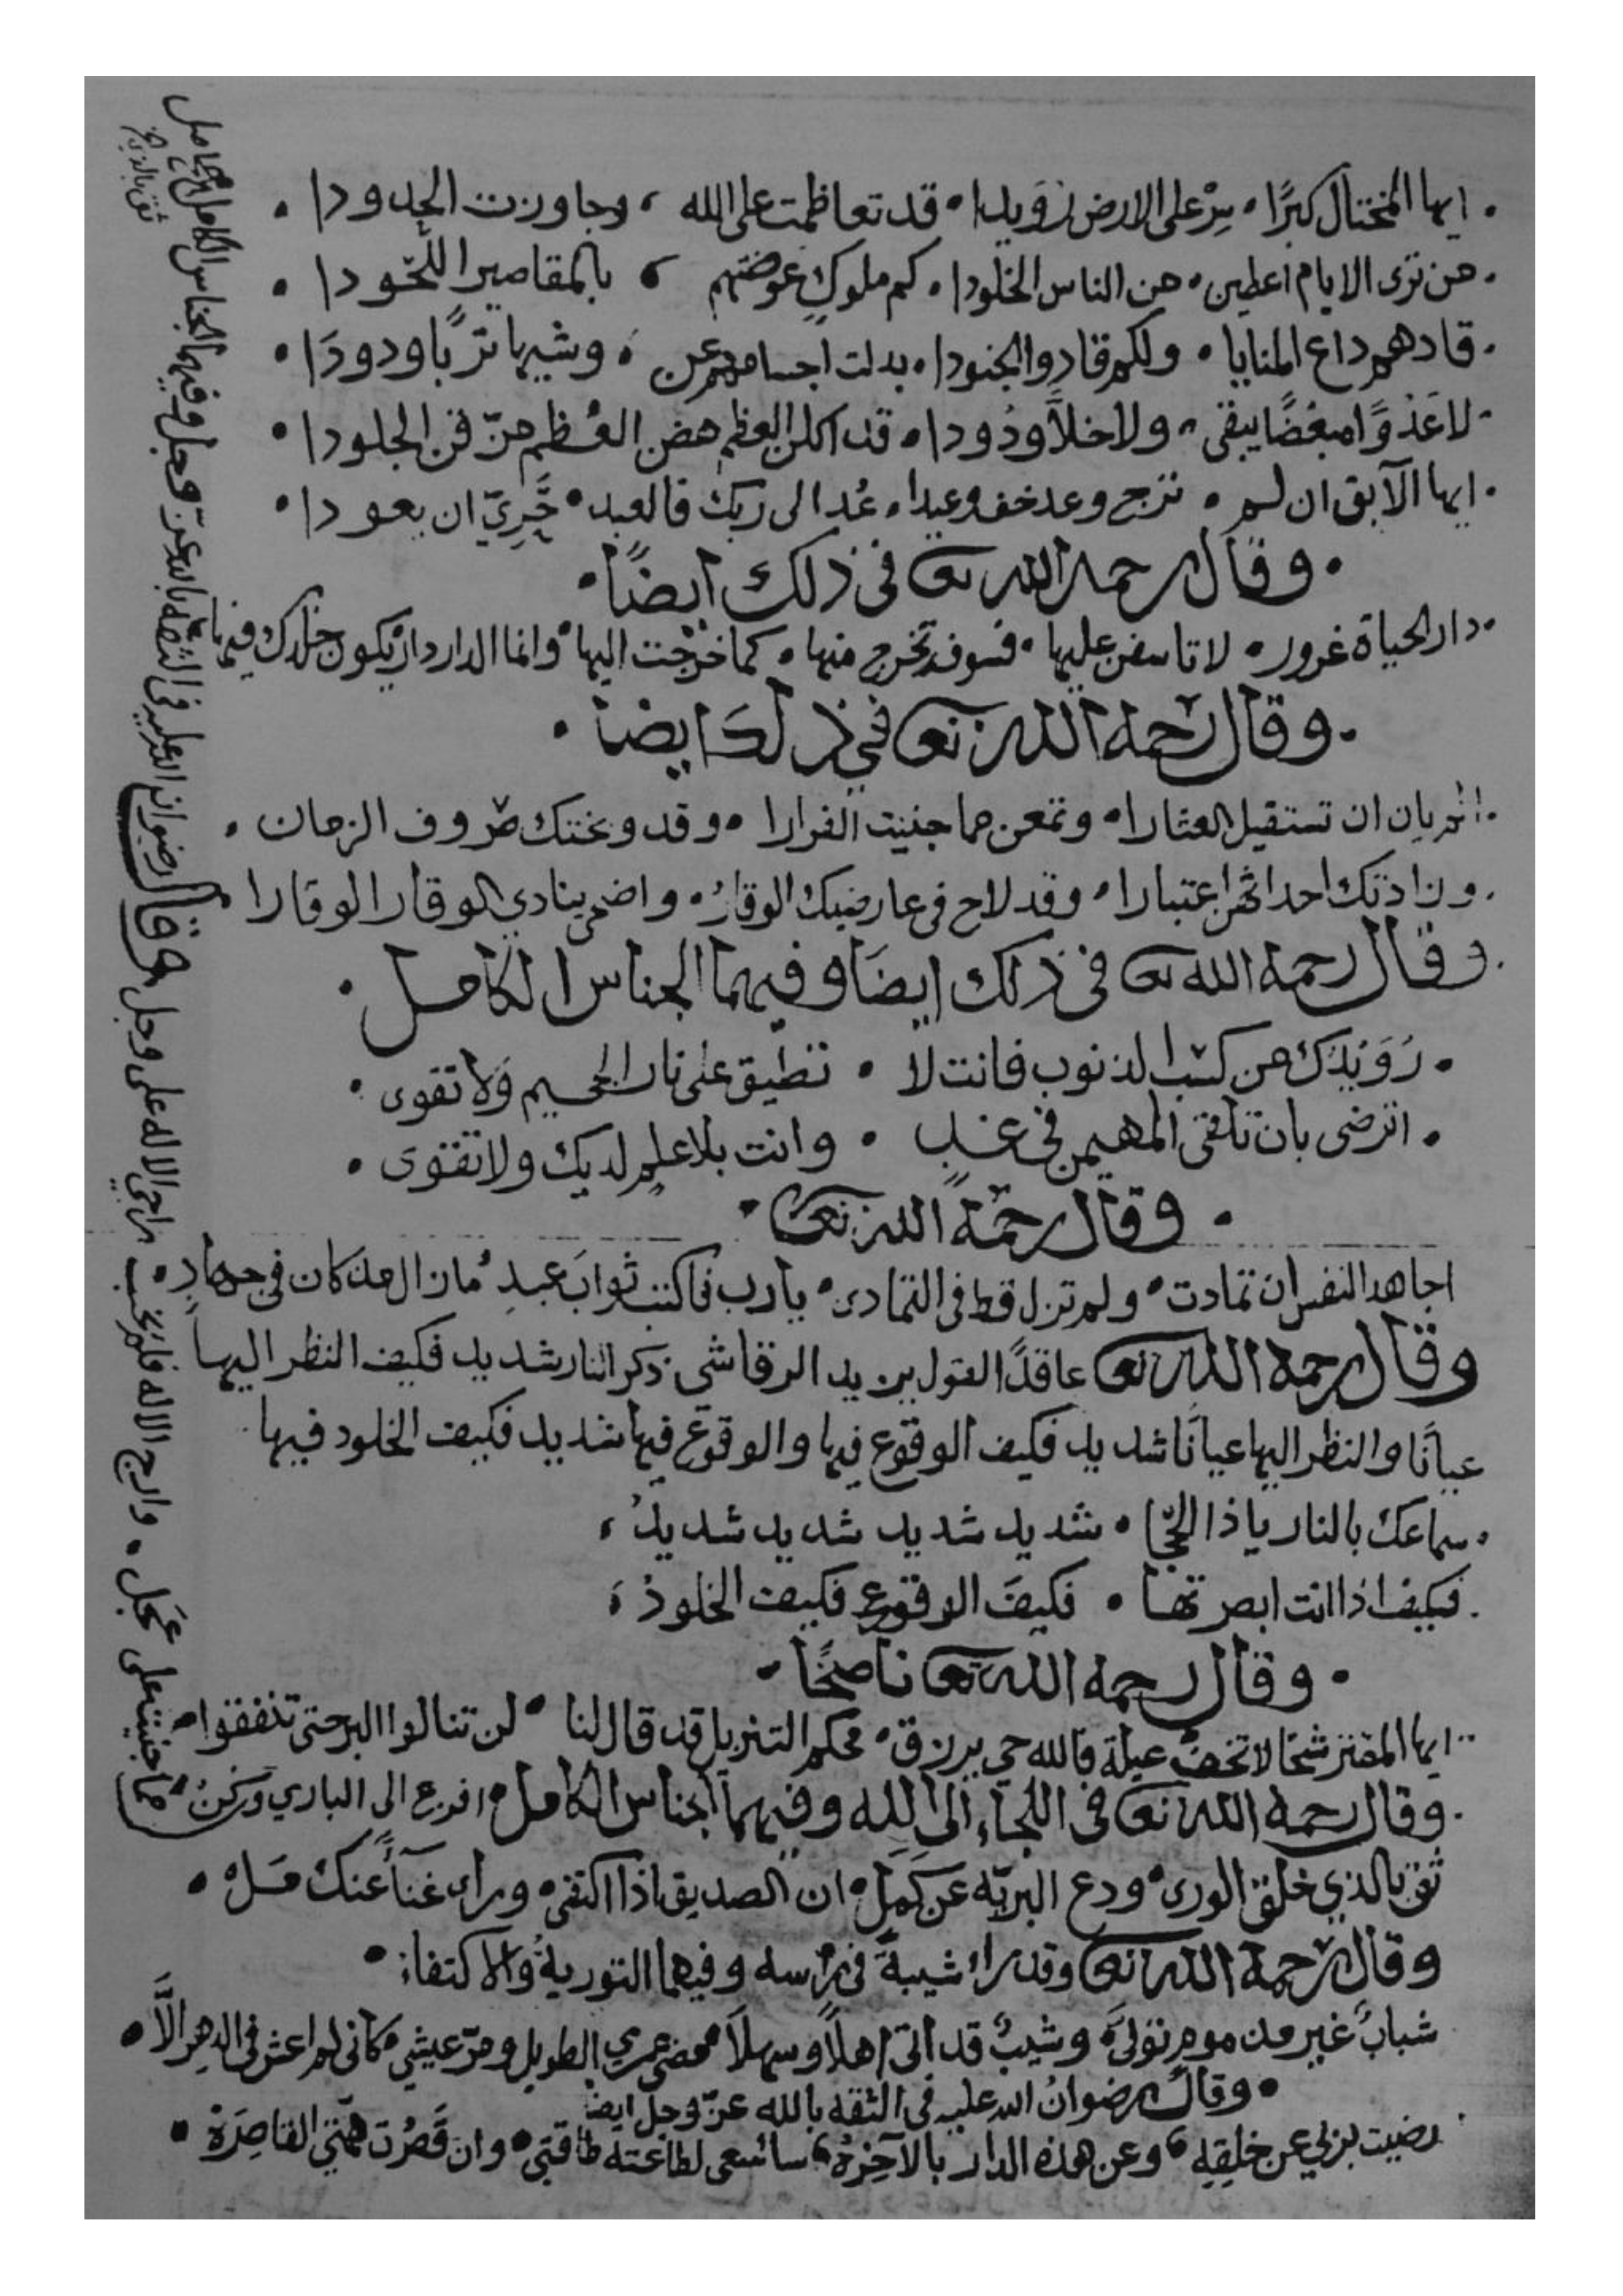 ايها المختال كبرًا • سِرْ على الارض رُوَيدا • قد تعاظمت على الله ، وجاوزت الحدودا •
من ترى الايام اعطين • من الناس الخلودا • كم ملوكٍ عوضتهم ، بالمقاصير اللّحودا •
قادهم داع المنايا • ولكم قادوا الجنودا • بدلت اجسامهم عن ، وشيها تربًا ودودَا •
لا عَدُوًّا مبغضًا يبقى ، ولا خلاًّ ودُودا • قد اكلن العظم هض العُظم مزّقن الجلودا •
ايها الآبق ان لم • ترج وعد خف وعيدا • عُد الى ربك فالعبد • حَرِيّ ان يعودا •
• وقال رحمه الله تعا فى ذلك ايضًا •
دار الحياة غرور • لا تاسفن عليها • فسوف تخرج منها • كما خرجت اليها • وانما الدار دار يكون خلدك فيها
• وقال رحمه الله تعا في ذلك ايضا •
الم يان ان تستقيل العثارا • وتمعن مما جنيت الفرارا • وقد وعظتك صروف الزمان •
وزادتك احداثهن اعتبارا • وقد لاح فى عارضيك الوقارُ • واضحى ينادي الوقار الوقارا •
وقال رحمه الله تعا فى ذلك ايضًا وفيهما الجناس الكامل •
• رُوَيْدَك من كسْب الذنوب فانت لا • تطيق على نار الجحيم وَلا تقوى •
• اترضى بان تلقى المهيمن فى غدٍ • وانت بلا علم لديك ولا تقوى •
• وقال رحمة الله تعا •
اجاهد النفس ان تمادت • ولم تزل قط فى التمادى • يارب فاكتب ثوابَ عبدٍ • مازال مذ كان فى جهادِ •
وقال رحمه الله تعا عاقدًا لقول يزيد الرقاشى ذكر النار شديد فكيف النظر اليها
عيانًا والنظر اليها عيانًا شديد فكيف الوقوع فيها والوقوع فيها شديد فكيف الخلود فيها
• سماعك بالنار ياذا الحِجَا • شديد شديد شديد شديدُ ،
فكيف اذا انت ابصرتها • فكيفَ الوقوع فكيف الخلودُ ،
• وقال رحمه الله تعا ناصحًا •
ايها المقتر شحًا لا تخف عيلة فالله حي يرزق • محكم التنزيل قد قال لنا • لن تنالوا البر حتى تنفقوا •
وقال رحمه الله تعا فى اللجاء الى الله وفيهما الجناس الكامل • افزع الى الباري وكنْ •
ثق بالذي خلق الورى • ودع البريّه عن كَمَلْ • ان الصديق اذا اكتفى • وراى غناًء عنك مَلْ •
وقال رحمة الله تعا وقد راى شيبةً فى راسه وفيهما التوريةُ والاكتفاء •
شبابٌ غير مذمومٍ تولىَّ • وشيبٌ قد اتى اهلًا وسهلًا • مضى عمري الطويل ومرّ عيشي • كأنى لم اعش فى الدهر الاَّ •
• وقال رضوانُ الله عليه فى الثقة بالله عزّ وجل ايضا
رضيت بربي عن خلقِهِ ، وعن هذه الدار بالآخِرَهْ ، ساسعى لطاعته طاقتي • وان قَصُرَت همّتي القاصِرَهْ •
وقال رضوان الله عليه فى الثقه بالله عزّ وجل وفيها الجناس الكامل
ثق بالذي
راجي الاله على وجل • وارج الاله فلم يخب • مما جنيت على عجل •